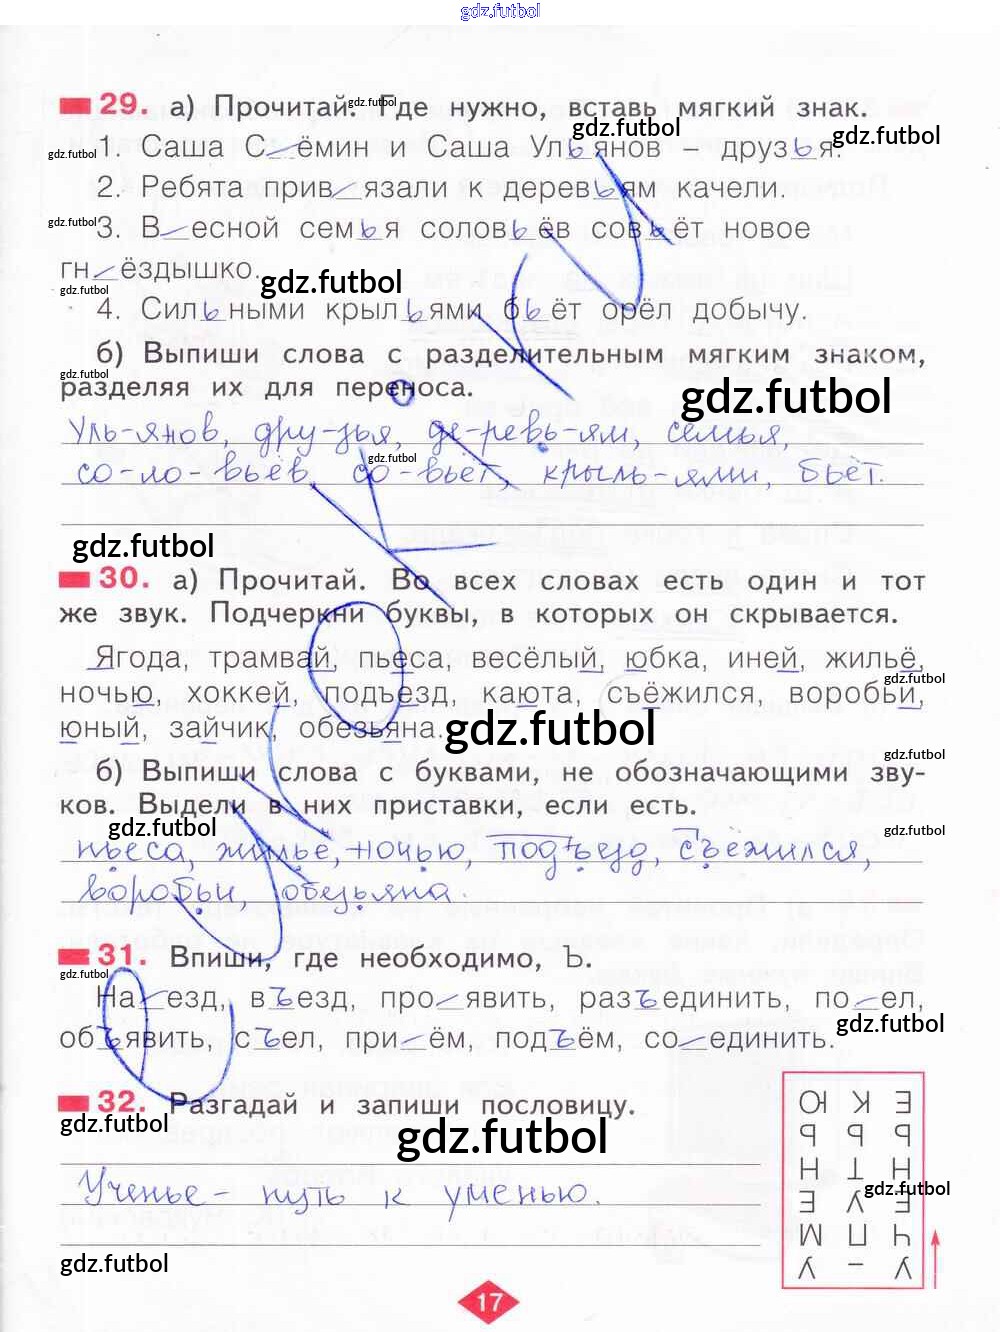 gdz.futbol
29. а) Прочитай. Где нужно, вставь мягкий знак.
gdz.futbol
1. Саша С_ёмин и Саша Ульянов – друзья.
gdz.futbol gdz.futbol gdz.futbol
2. Ребята прив_язали к деревьям качели.
3. В_есной семья соловьёв совьёт новое
gdz.futbol
гн_ёздышко.
gdz.futbol gdz.futbol
4. Сильными крыльями бьёт орёл добычу.
б) Выпиши слова с разделительным мягким знаком,
gdz.futbol
разделяя их для переноса.
gdz.futbol
Уль-янов, дру-зья, де-ревь-ям, семья,
gdz.futbol
со-ло-вьёв, со-вьёт, крыль-ями, бьёт.
gdz.futbol
30. а) Прочитай. Во всех словах есть один и тот
же звук. Подчеркни буквы, в которых он скрывается.
Ягода, трамвай, пьеса, весёлый, юбка, иней, жильё,
gdz.futbol
ночью, хоккей, подъезд, каюта, съёжился, воробьи,
юный, зайчик, обезьяна.
gdz.futbol
б) Выпиши слова с буквами, не обозначающими зву-
ков. Выдели в них приставки, если есть.
gdz.futbol gdz.futbol
пьеса, жильё, ночью, подъезд, съёжился,
воробьи, обезьяна.
31. Впиши, где необходимо, Ъ.
gdz.futbol
На_езд, въезд, про_явить, разъединить, по_ел,
gdz.futbol
объявить, съел, при_ём, подъём, со_единить.
32. Разгадай и запиши пословицу.
gdz.futbol gdz.futbol
Ученье – путь к уменью.
gdz.futbol
gdz.futbol
Ю К Е
Ь Ь Ь
Н Т Н
Е У Е
М П Ч
У – У
17